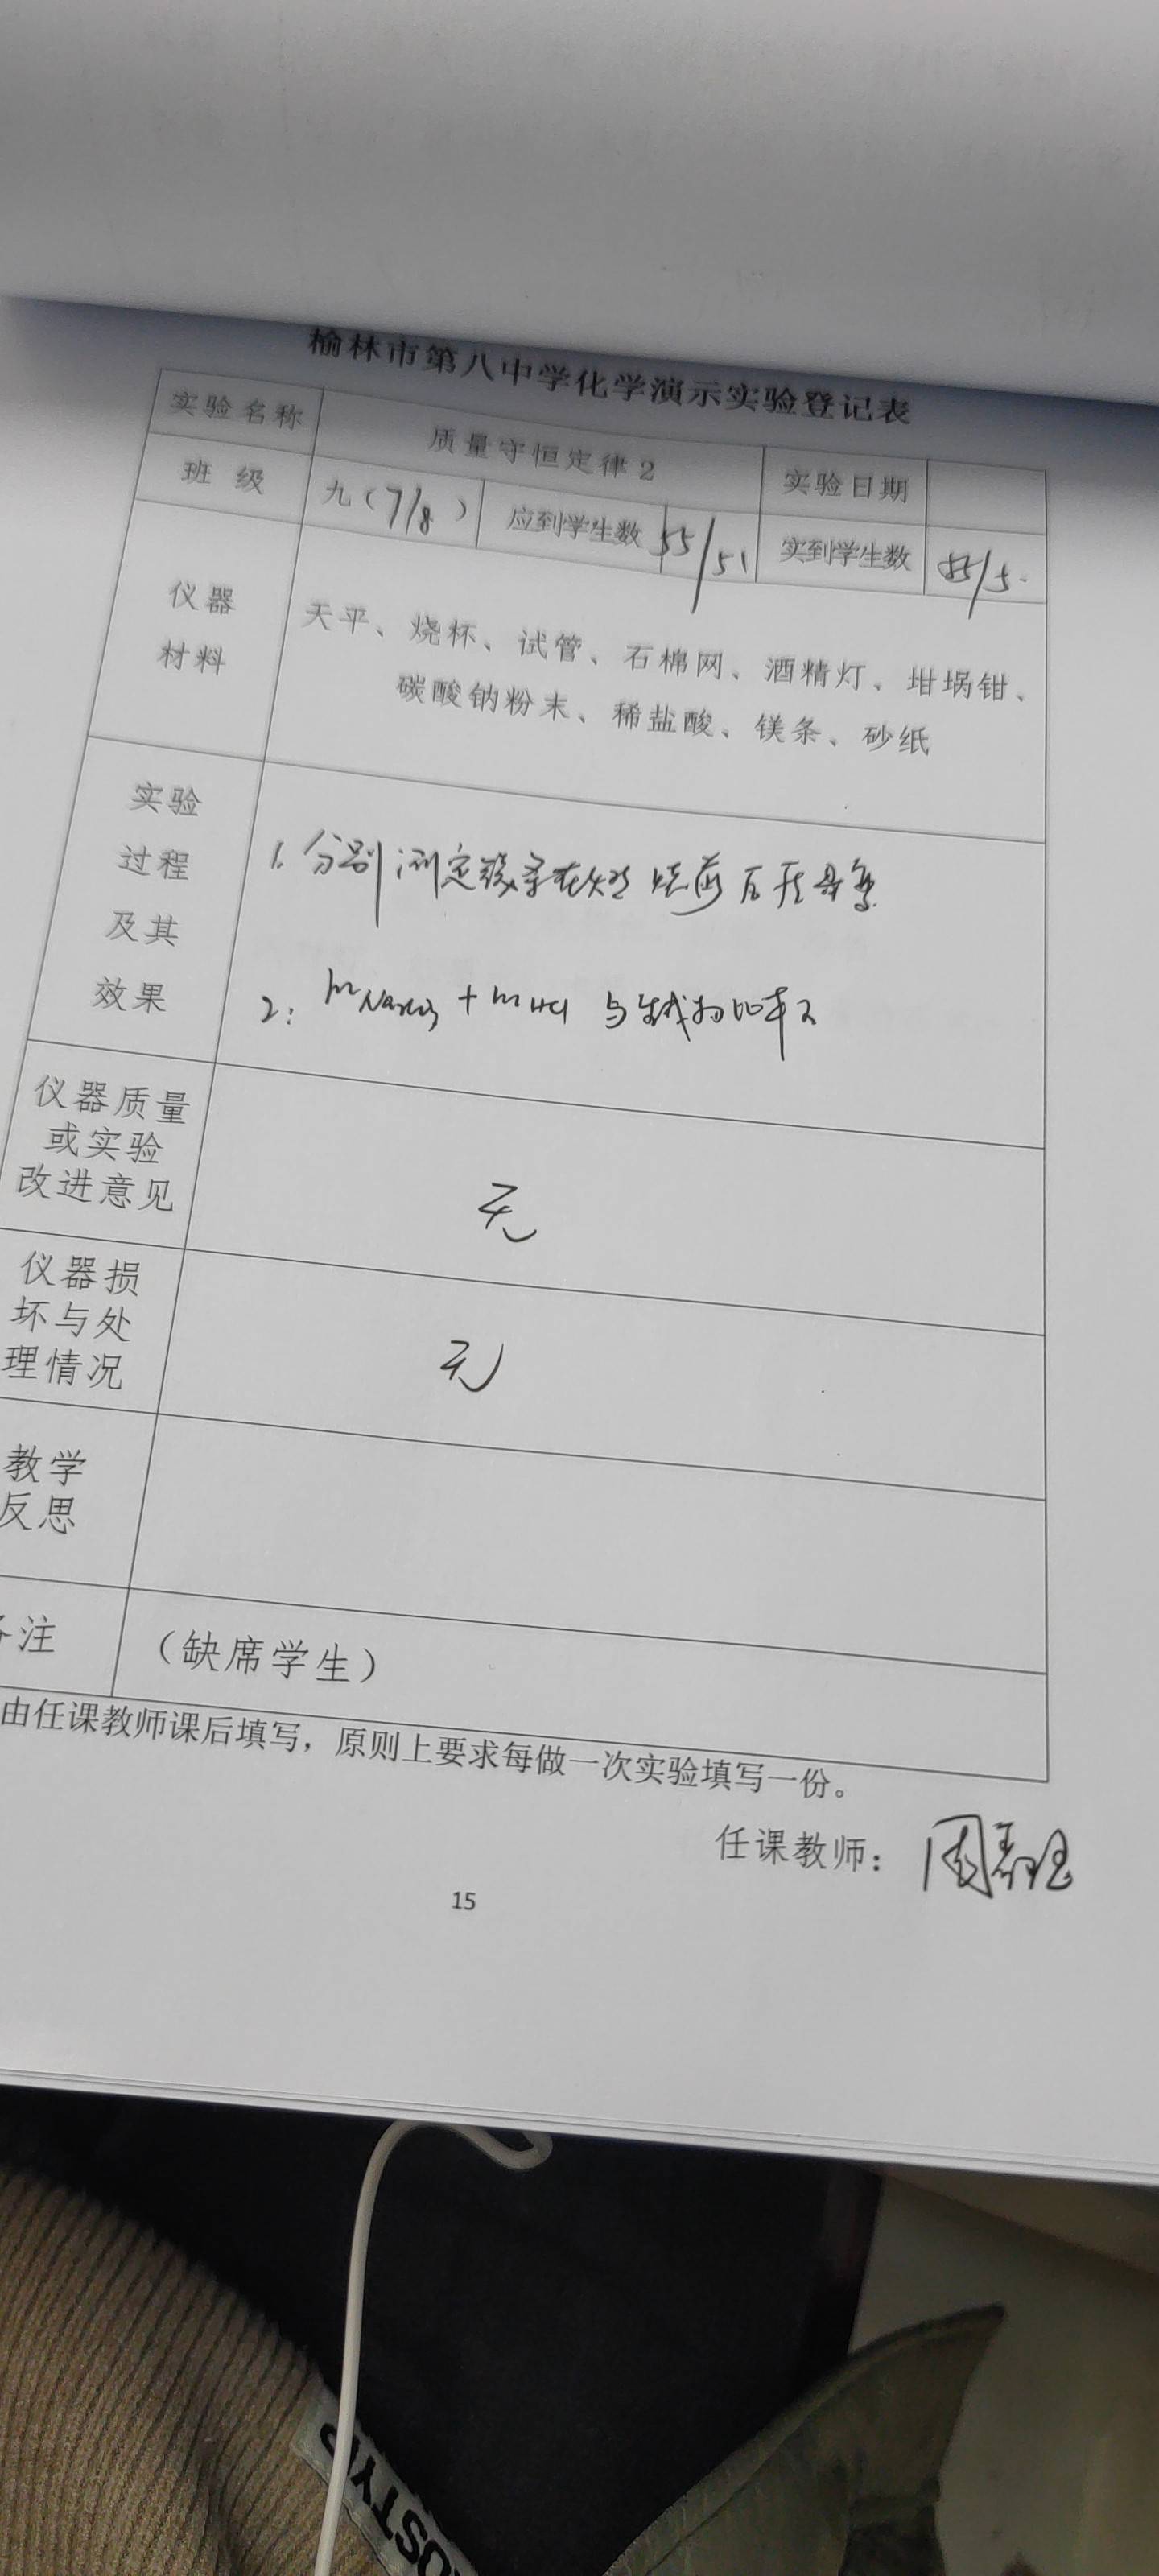 榆林市第八中学化学演示实验登记表
实验名称 质量守恒定律2 实验日期
班 级 九（7/8） 应到学生数 55/51 实到学生数
仪器
材料
天平、烧杯、试管、石棉网、酒精灯、坩埚钳、
碳酸钠粉末、稀盐酸、镁条、砂纸
实验
过程
及其
效果
1. 分别测定镁条在燃烧前后质量
2: mNa2CO3 + mHCl 与生成物
仪器质量
或实验
改进意见
无
仪器损
坏与处
理情况
无
教学
反思
备注 （缺席学生）
由任课教师课后填写，原则上要求每做一次实验填写一份。
任课教师： 周
15